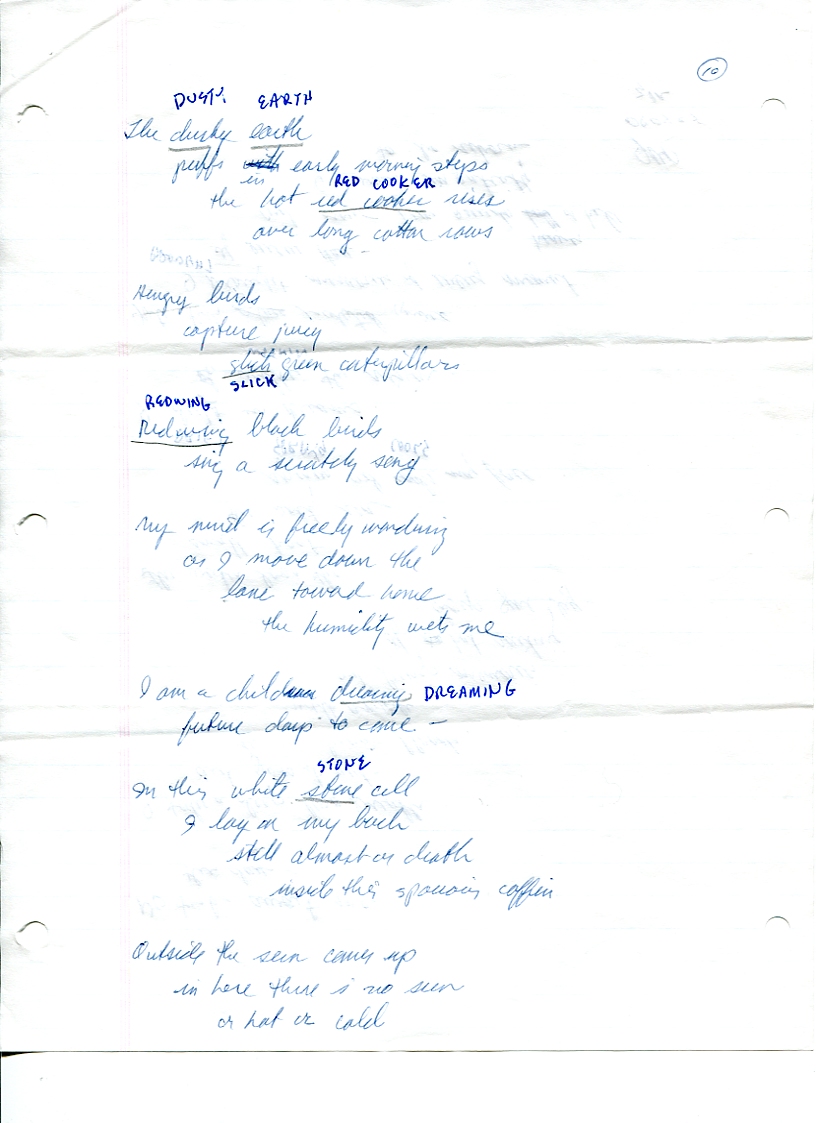 10
DUSTY EARTH
The dusky earth
puffs with early morning steps
in RED COOKER
the hot red cooker rises
over long cotton rows
Hungry birds
capture juicy
slick green caterpillars
SLICK
REDWING
Redwing black birds
sing a scratchy song
My mind is freely wandering
as I move down the
lane toward home
the humidity wets me
I am a child dreaming DREAMING
future days to come -
STONE
In this white stone cell
I lay on my back
still almost as death
inside this spacious coffin
Outside the sun comes up
in here there is no sun
or hot or cold